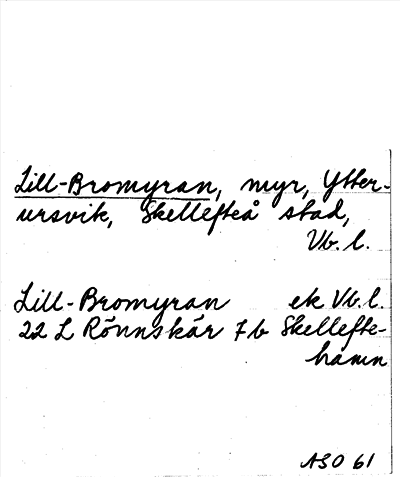 Lill-Bromyran, myr, Ytter-
ursvik, Skellefteå stad,
Vb. l.
Lill-Bromyran ek Vb. l.
22 L Rönnskär 7 b Skellefte-
hamn
ASO 61